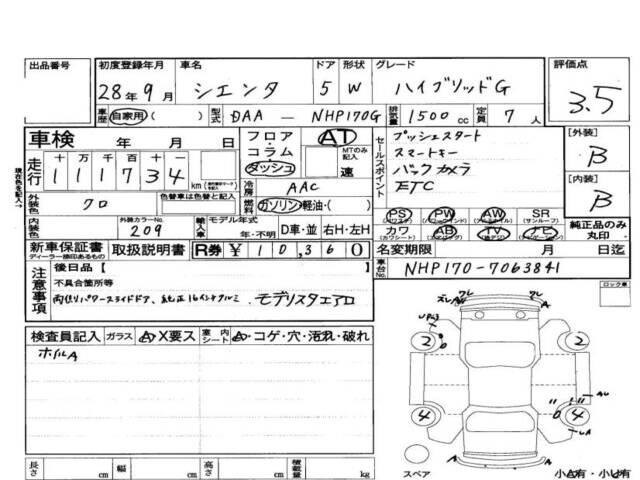 出品番号 初度登録年月 車名 ドア 形状 グレード 評価点
28年9月 シエンタ 5 W ハイブリッドG 3.5
車歴 自家用 ( ) 型式 DAA - NHP170G 排気量 1500cc 定員 7人
車検 年 月 日 フロア・コラム・ダッシュ AT MTのみ記入 速
セールスポイント プッシュスタート
スマートキー
バックカメラ
ETC
[外装] B
[内装] B
現在の状況を記入→
走行 十 万 千 百 十 一
111734 km
冷房 AAC
外装色 クロ 色替車は色替と記入 燃料 ガソリン・軽油・( )
PS PW AW SR 純正品のみ丸印
(サンルーフ)
カワ AB TV ナビ
(カワシート)
内装色 外装カラーNo. 209 輸入車 モデル年式 年・不明 D車・並 右H・左H
新車保証書 取扱説明書 R券 ¥ 10,360
ディーラー捺印あるもの
名変期限 月 日迄
車台No. NHP170-7063841
注意事項 後日品【 】
不具合箇所等
両側パワースライドドア、純正16インチアルミ モデリスタエアロ
ロック車
検査員記入 ガラス A・X要ス 室内シート A・コゲ・穴・汚れ・破れ
ホイルA
2 2
4 4
長さ cm 幅 cm 高さ cm 積載量 kg
スペア 小A有・小U有